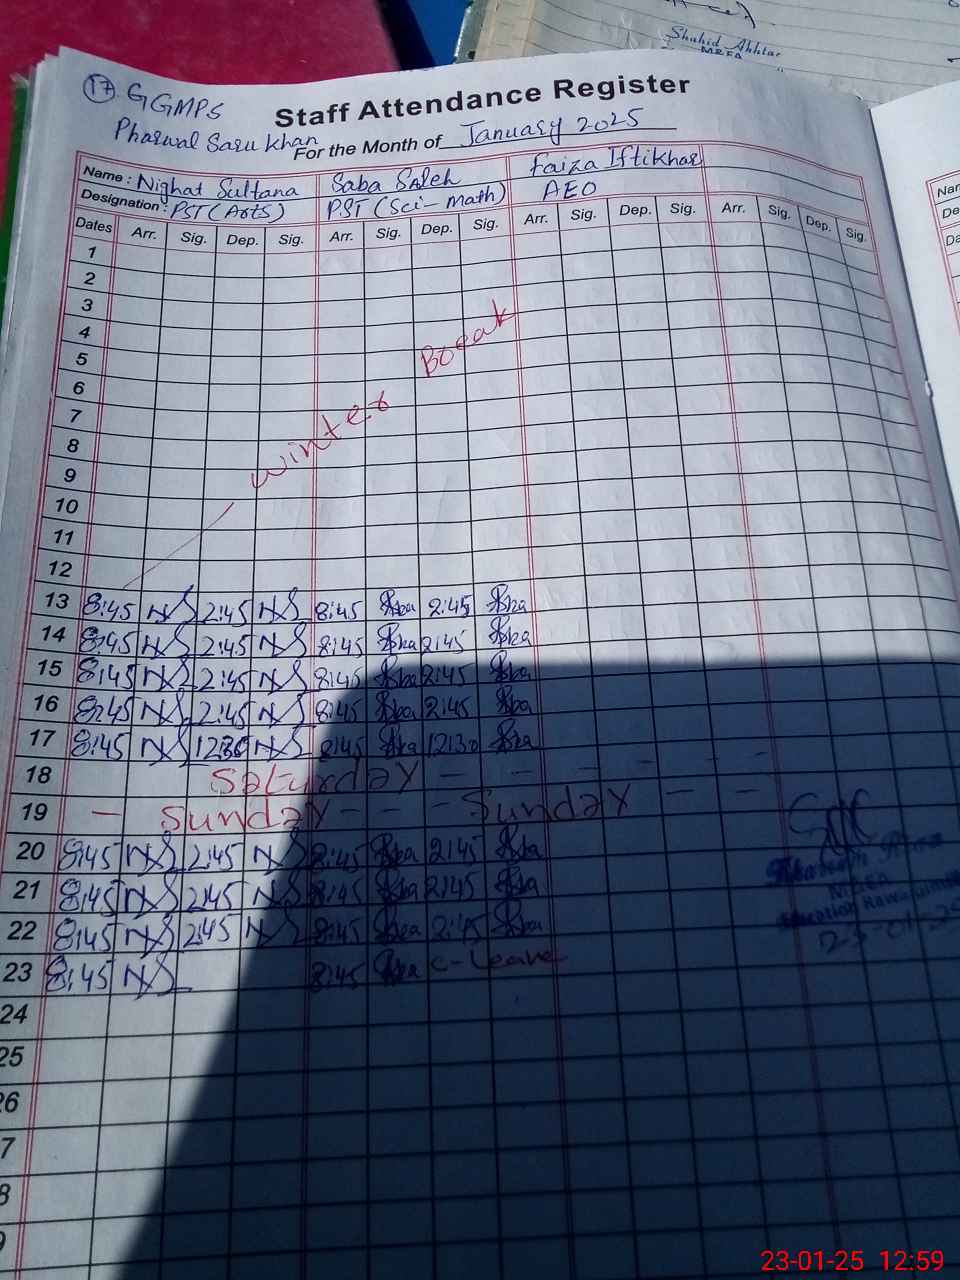 Shahid Akhtar
MEFA
17. GGMPS
Staff Attendance Register
Pharwal Saru Khan
For the Month of January 2025
Name: Nighat Sultana Saba Saleh Faiza Iftikhar
Designation: PST (Arts) PST (Sci-math) AEO
Dates Arr. Sig. Dep. Sig. Arr. Sig. Dep. Sig. Arr. Sig. Dep. Sig. Arr. Sig. Dep. Sig.
1
2
3
4
5
6
7
8
9
10
11
12
Winter Break
13 8:45 NS 2:45 NS 8:45 2:45
14 8:45 NS 2:45 NS 8:45 2:45
15 8:45 NS 2:45 NS 8:45 2:45
16 8:45 NS 2:45 NS 8:45 2:45
17 8:45 NS 12:30 NS 8:45 12:30
18 Saturday - - - - - -
19 - Sunday - - - Sunday - - -
20 8:45 NS 2:45 NS 8:45 2:45
21 8:45 NS 2:45 NS 8:45 2:45
22 8:45 NS 2:45 NS 8:45 2:45
23 8:45 NS 8:45 C-Leave
24
25
26
7
8
9
23-01-25 12:59